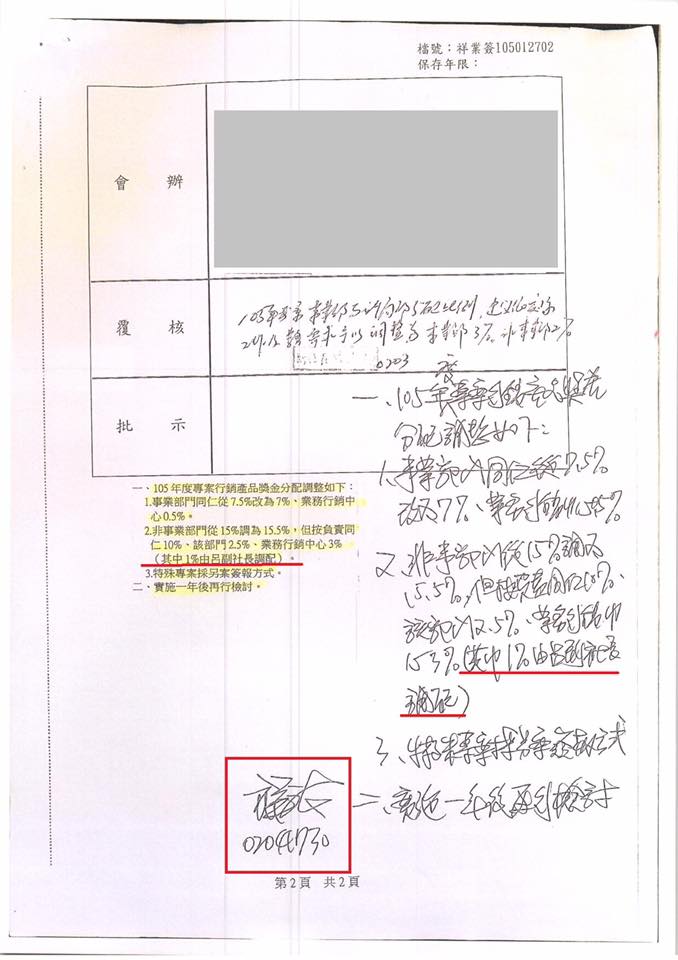 檔號：祥業簽105012702
保存年限：
會 辦
覆 核
0203
批 示
一、105年度專案行銷產品獎金
分配調整如下：
1.事業部門同仁從7.5%
改為7%、業務行銷中心0.5%
2.非事業部門從15%調為
15.5%，但按負責同仁10%、
該部門2.5%、業務行銷中
心3%（其中1%由呂副社長
調配）
3.特殊專案採另案簽報方式
二、實施一年後再行檢討
一、105年度專案行銷產品獎金分配調整如下：
1.事業部門同仁從7.5%改為7%、業務行銷中
心0.5%。
2.非事業部門從15%調為15.5%，但按負責同
仁10%、該部門2.5%、業務行銷中心3%
（其中1%由呂副社長調配）。
3.特殊專案採另案簽報方式。
二、實施一年後再行檢討。
02041730
第2頁 共2頁